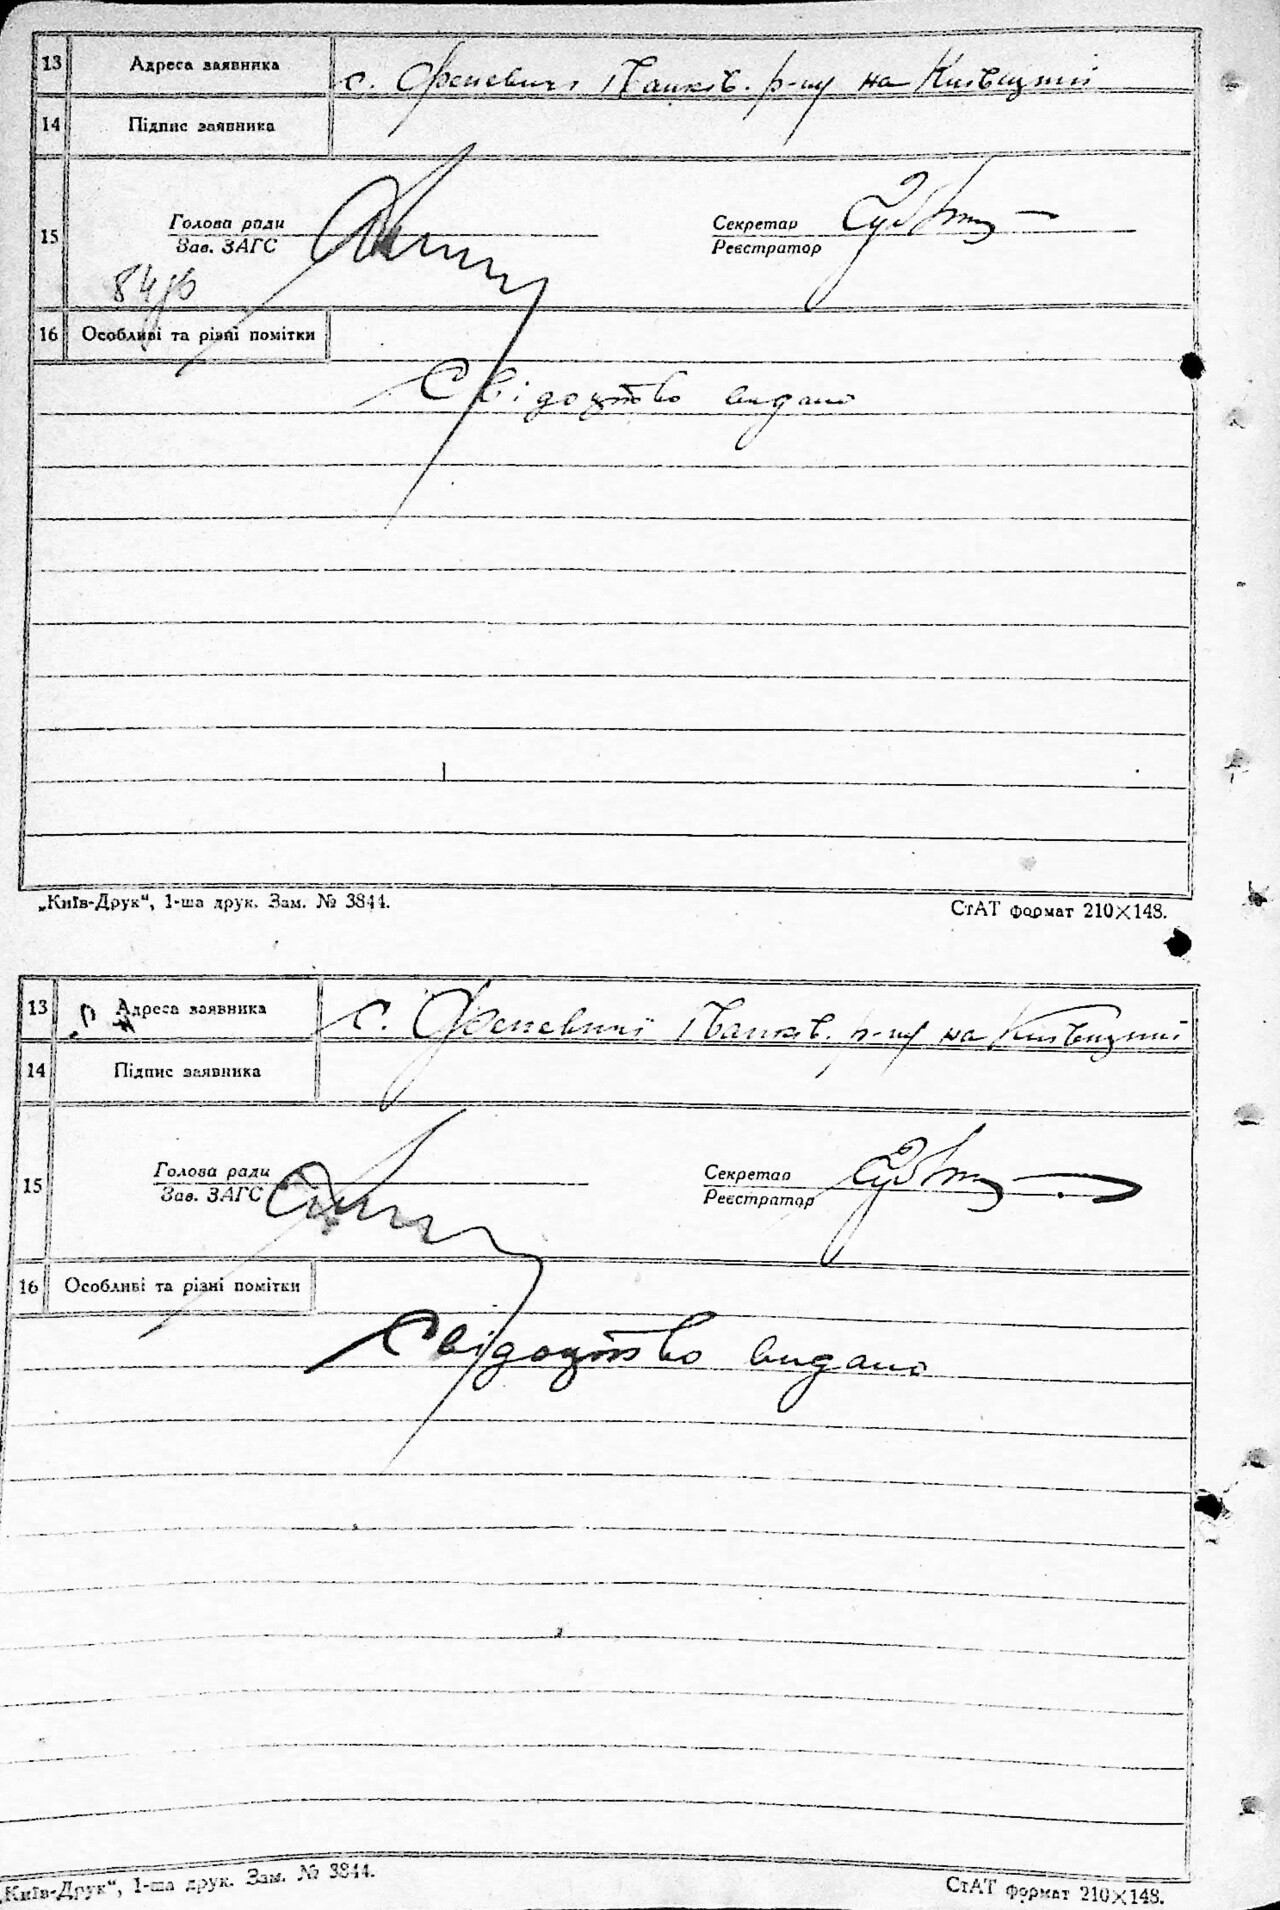 13 Адреса заявника с. Феневичі Іванків. р-ну на Київщині
14 Підпис заявника
15 Голова ради Секретар
Зав. ЗАГС Реєстратор
16 Особливі та різні помітки
Свідоцтво видано
„Київ-Друк“, 1-ша друк. Зам. № 3844. СтАТ формат 210×148.
13 Адреса заявника с. Феневичі Іванків. р-ну на Київщині
14 Підпис заявника
15 Голова ради Секретар
Зав. ЗАГС Реєстратор
16 Особливі та різні помітки
Свідоцтво видано
„Київ-Друк“, 1-ша друк. Зам. № 3844. СтАТ формат 210×148.